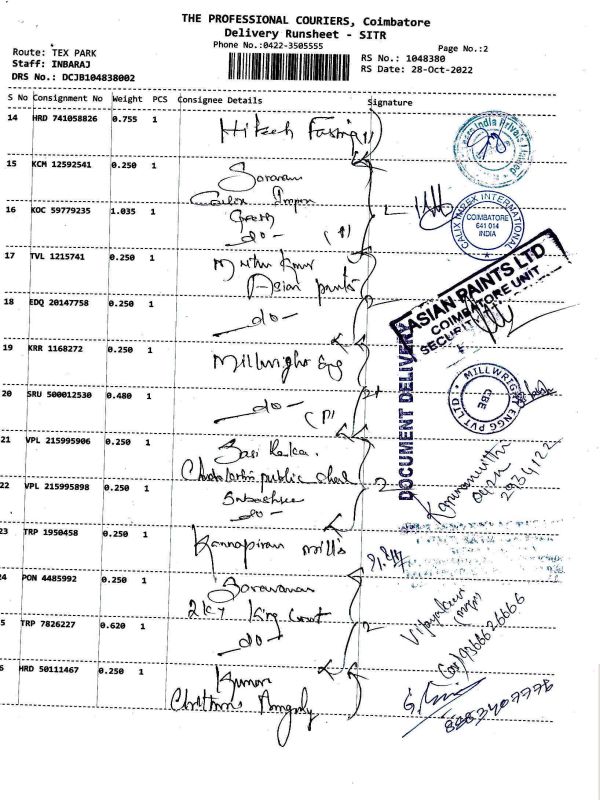 THE PROFESSIONAL COURIERS, Coimbatore
Delivery Runsheet - SITR
Phone No.:0422-3505555
Page No.:2
Route: TEX PARK
Staff: INBARAJ
DRS No.: DCJB104838002
RS No.: 1048380
RS Date: 28-Oct-2022
S No Consignment No Weight PCS Consignee Details Signature
14 HRD 741058826 0.755 1 Hitech
15 KCM 12592541 0.250 1 Saravanan
Calix Impex
16 KOC 59779235 1.035 1
do - (P)
17 TVL 1215741 0.250 1 Muthu Kumar
Asian paints
18 EDQ 20147758 0.250 1 do -
19 KRR 1168272 0.250 1 Millwright Eng
20 SRU 500012530 0.480 1 do - (P)
21 VPL 215995906 0.250 1
public
22 VPL 215995898 0.250 1
do -
23 TRP 1950458 0.250 1 Kannapiran Mills
24 PON 4485992 0.250 1 Saravanan
5 TRP 7826227 0.620 1 do -
6 HRD 50111467 0.250 1 Kumar
India Private Limited
CALIX IMPEX INTERNATIONAL
COIMBATORE
641 014
INDIA
ASIAN PAINTS LTD
COIMBATORE UNIT
SECURITY
DOCUMENT DELIVERY
MILLWRIGHT ENGG PVT LTD
CBE
9366626666